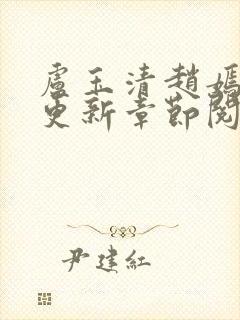 盧玉清趙媽
更新章節閱
尹建紅